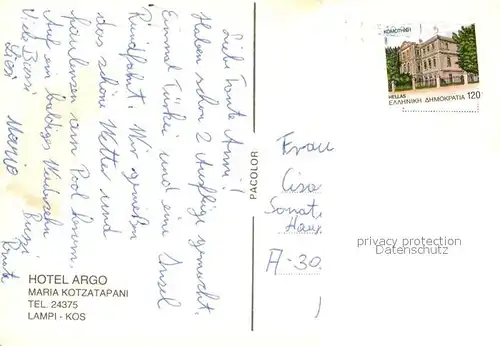 Liebe Tante Anni!
Haben schon 2 Ausflüge gemacht.
Einmal Türkei und eine Insel
Rundfahrt. Wir genießen
das schöne Wetter und
faulenzen am Pool herum.
Auf ein baldiges Wiedersehn
Viele Bussi
Mario
HOTEL ARGO
MARIA KOTZATAPANI
TEL. 24375
LAMPI - KOS
PACOLOR
ΚΟΜΟΤΗΝΗ
HELLAS
ΕΛΛΗΝΙΚΗ ΔΗΜΟΚΡΑΤΙΑ 120
Frau
Cisa
Sonat
Hau
A-30
privacy protection
Datenschutz